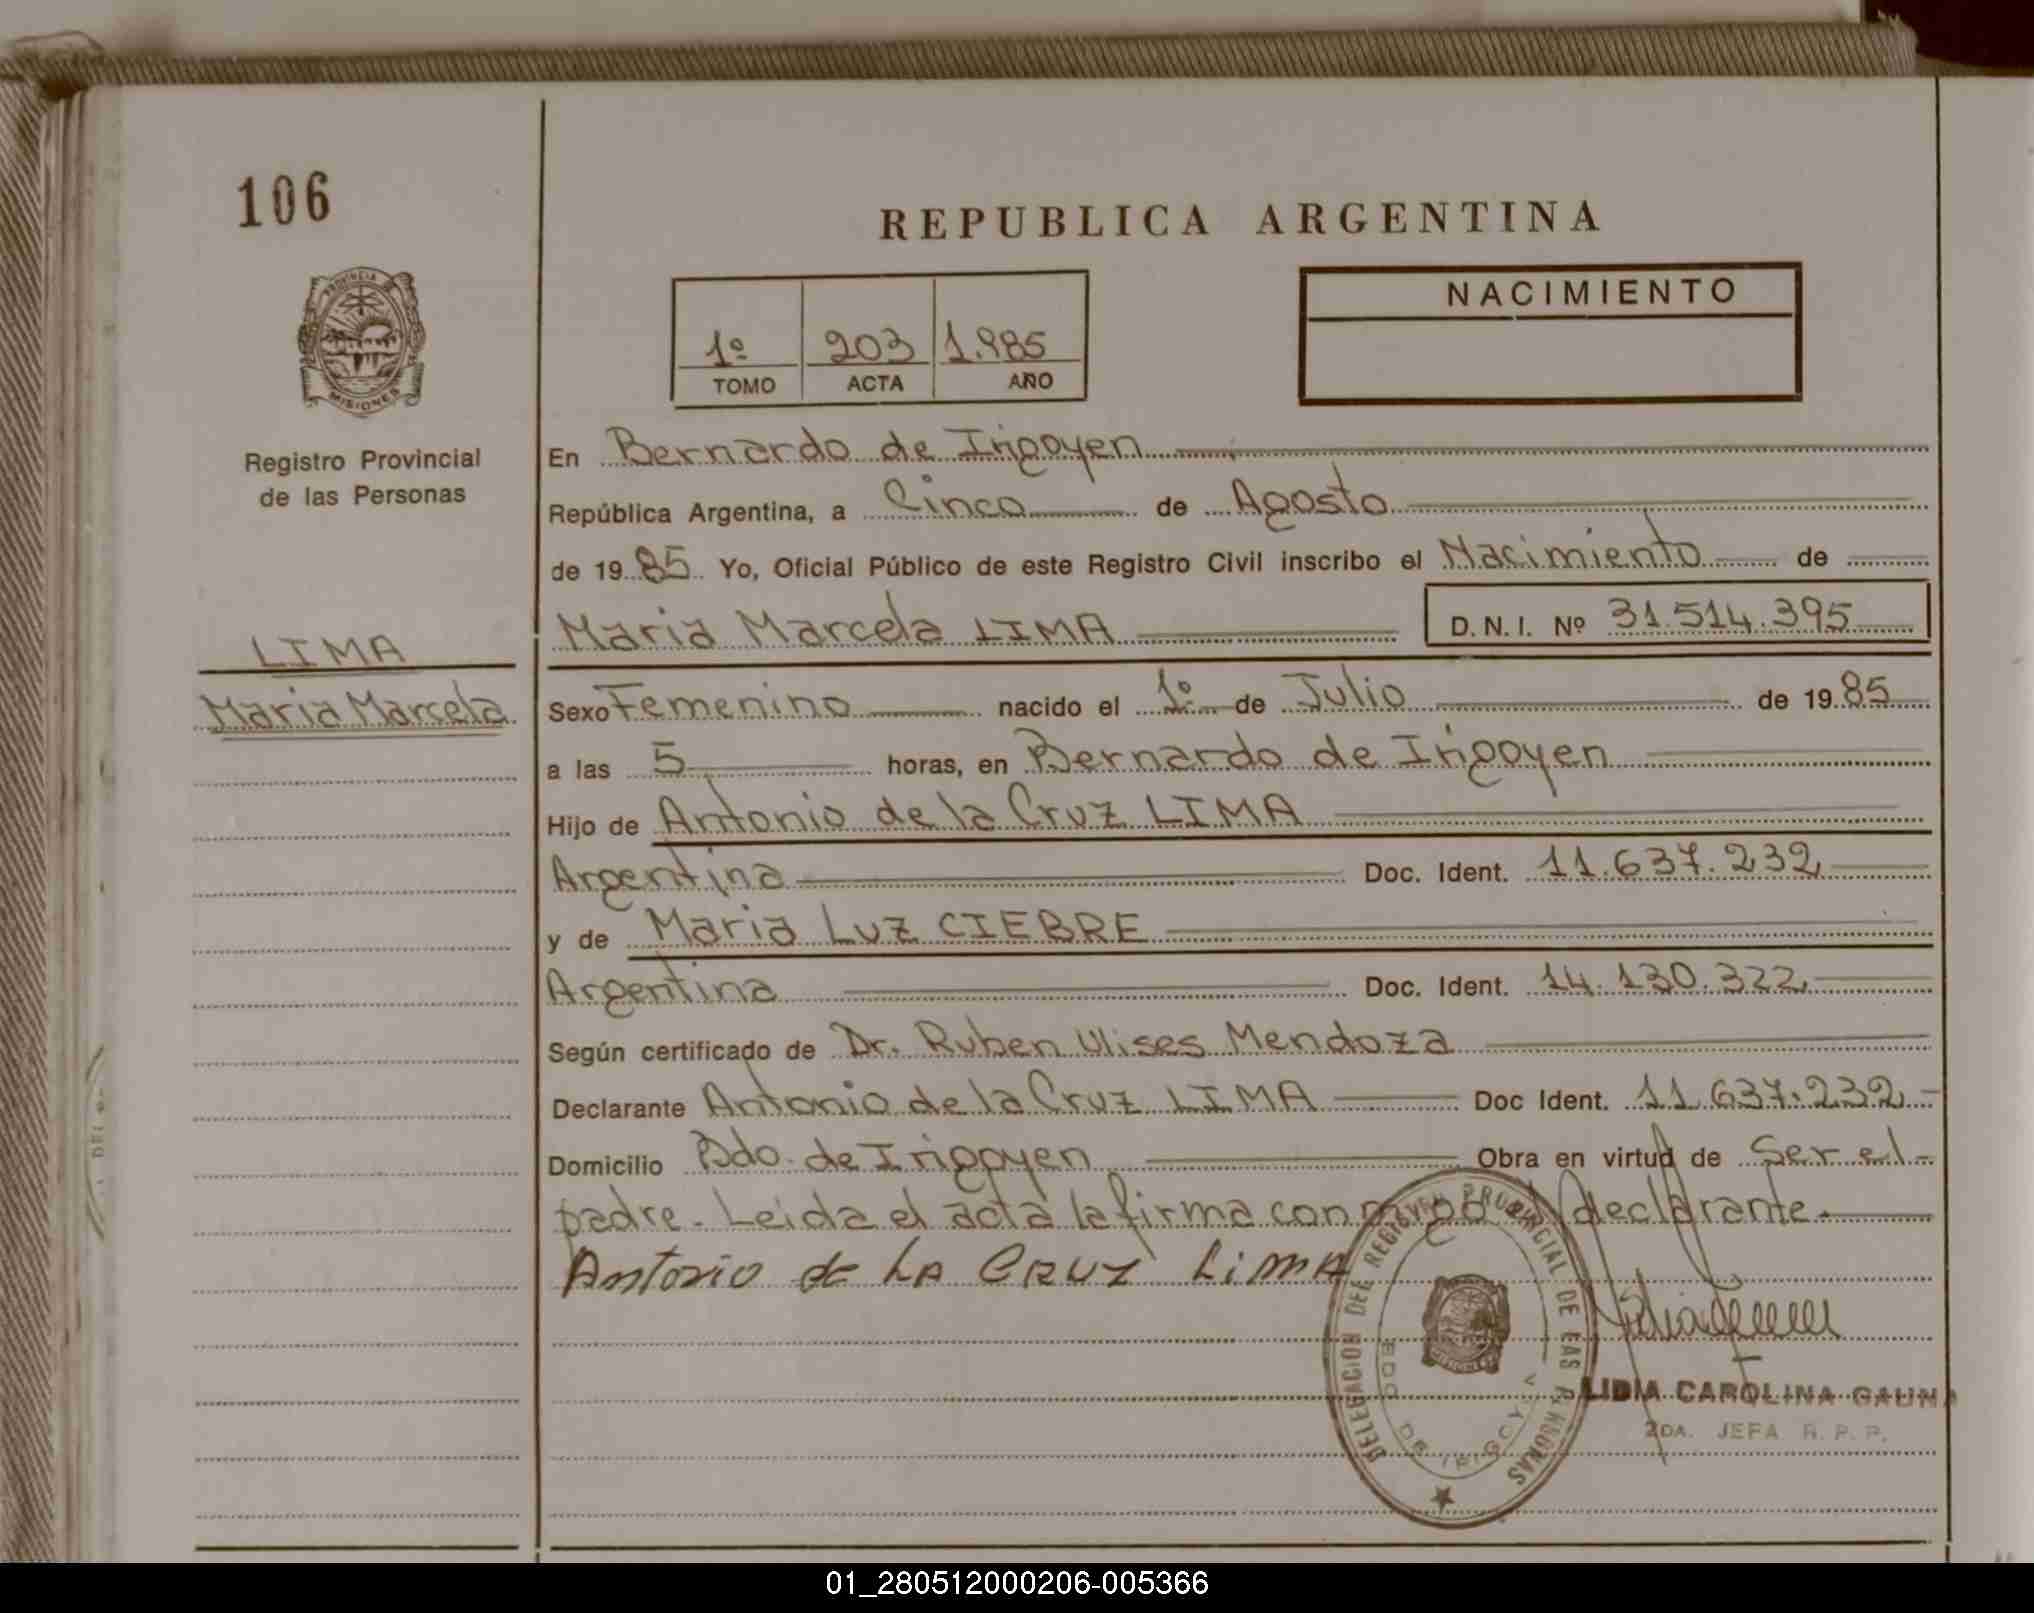 106
REPUBLICA ARGENTINA
PROVINCIA
MISIONES
Registro Provincial
de las Personas
NACIMIENTO
1º 203 1.985
TOMO ACTA AÑO
LIMA
Maria Marcela
En Bernardo de Irigoyen
República Argentina, a Cinco de Agosto
de 1985 Yo, Oficial Público de este Registro Civil inscribo el Nacimiento de
Maria Marcela LIMA D.N.I. Nº 31.514.395
Sexo Femenino nacido el 1º de Julio de 1985
a las 5 horas, en Bernardo de Irigoyen
Hijo de Antonio de la Cruz LIMA
Argentina Doc. Ident. 11.637.232
y de Maria Luz CIEBRE
Argentina Doc. Ident. 14.130.322
Según certificado de Dr. Ruben Ulises Mendoza
Declarante Antonio de la Cruz LIMA Doc Ident. 11.637.232
Domicilio Bdo. de Irigoyen Obra en virtud de Ser el
padre. Leida el acta la firma conmigo el declarante.
Antonio de LA CRUZ LiMA
DELEGACION DEL REGISTRO PROVINCIAL DE LAS PERSONAS
BDO DE IRIGOYEN
MISIONES
LIDIA CAROLINA GAUNA
2DA. JEFA R.P.P.
01_280512000206-005366